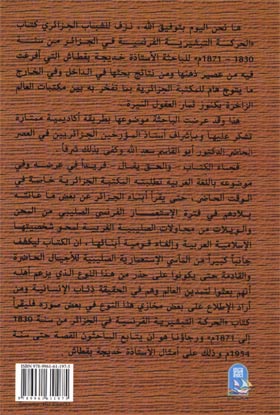 ها نحن اليوم بتوفيق الله، نزف للشباب الجزائري كتاب
«الحركة التبشيرية الفرنسية في الجزائر من سنة
1830 – 1871م» للباحثة الأستاذة خديجة بقطاش التي أفرغت
فيه من عصير ذهنها ومن نتائج بحثها في الداخل وفي الخارج
ما يتوج هام للمكتبة الجزائرية بنا نفخر به بين مكتبات العالم
الزاخرة بكنوز ثمار العقول النيرة.
وهذا وقد عرضت الباحثة موضوعها بطريقة أكاديمية ممتازة
تشكر عليها وبإشراف أستاذ المؤرخين الجزائريين في العصر
الحاضر الدكتور أبو القاسم سعد الله وكفى بذلك شرفا.
فجاء الكتاب - والحق يقال - فريدا في عرضه وفي
موضوعه باللغة العربية تطلبته المكتبة الجزائرية خاصة في
الوقت الحاضر، حتى يقرأ أبناء الجزائر عن بعض ما عانته
بلادهم في فترة الإستعمار الفرنسي الصليبي من المحن
والويلات من محاولات الصليبية الغربية لمحو شخصيتها
الإسلامية العربية وإلغاء قومية أبنائها، إن الكتاب ليكشف
جانبا كبيرا من المآسي الإستعمارية الصليبية للأجيال الحاضرة
والقادمة حتى يكونوا على حذر من هذا النوع الذي يزعم أهله
أنهم بعثوا لتمدين العالم وهم في الحقيقة ذئاب الإنسانية ومن
أراد الإطلاع على بعض مخازي هذا النوع في بعض صوره فليقرأ
كتاب «الحركة التبشيرية الفرنسية في الجزائر من سنة 1830
إلى 1871م» ورجاؤنا هو أن يتابع الباحثون القصة حتى سنة
1954م وذلك على أمثال الأستاذة خديجة بقطاش.
ISBN 978-9961-61-197-5